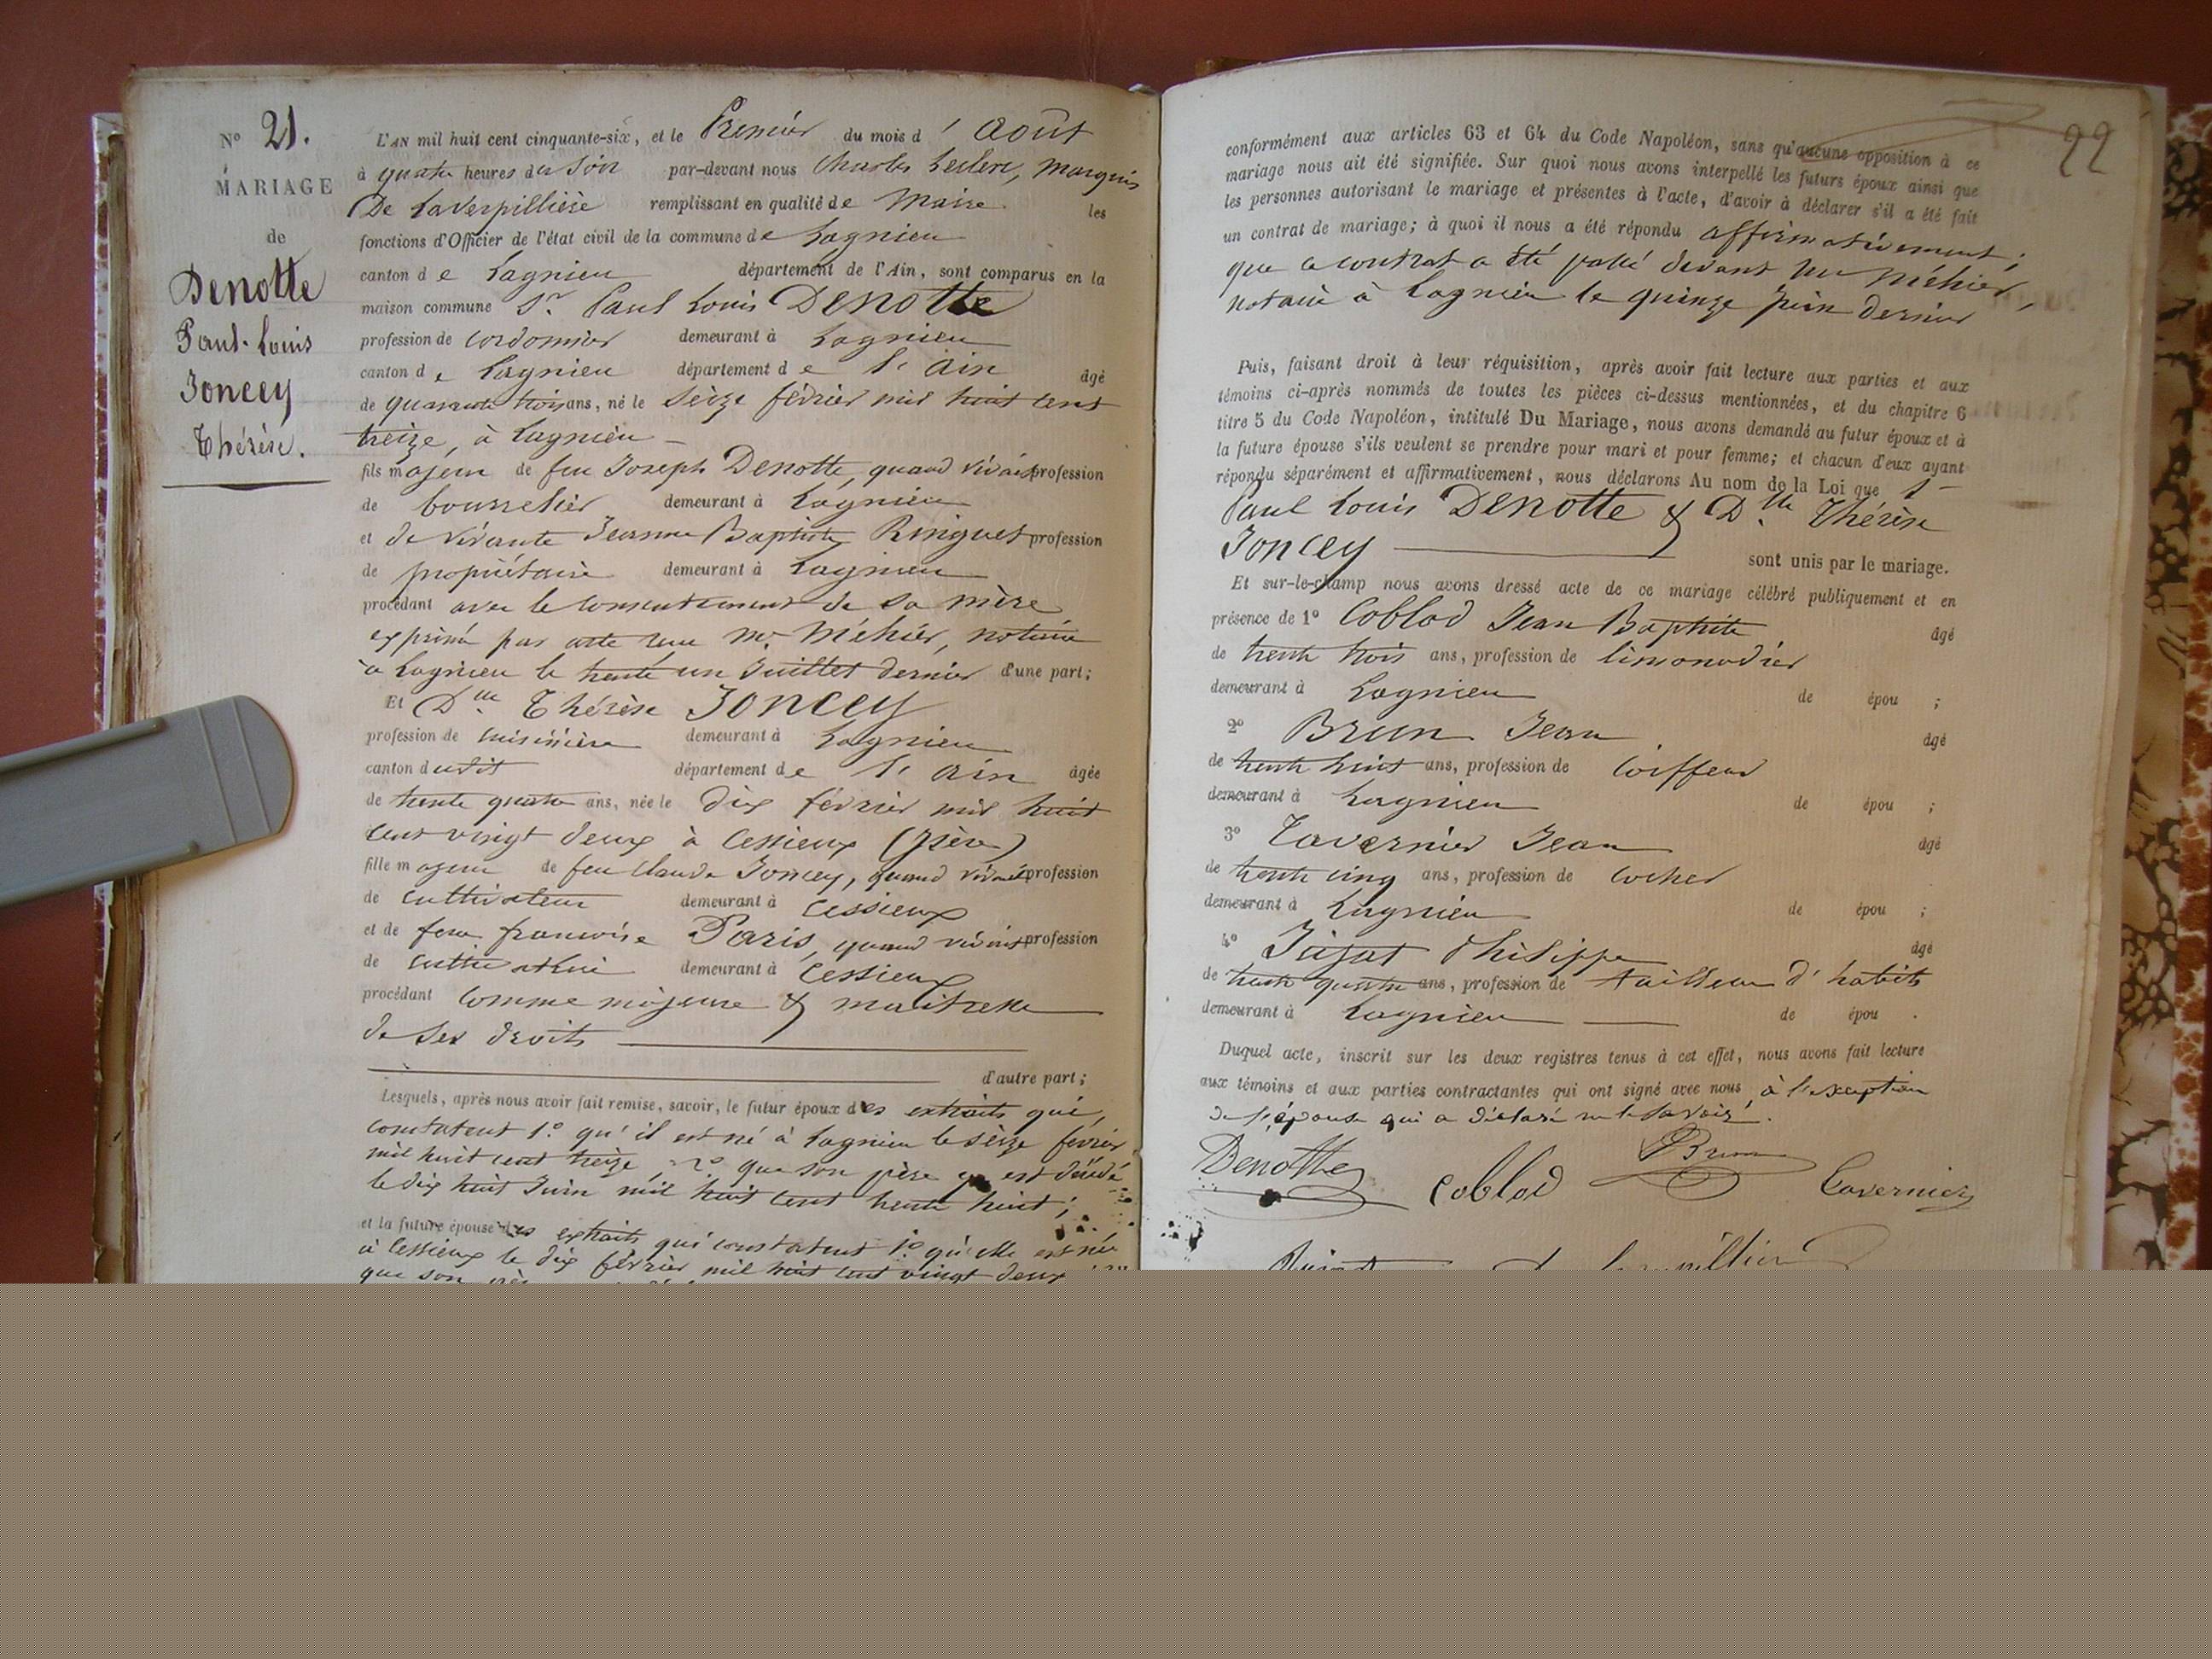 N° 21.
MARIAGE
de
Denotte
Paul-Louis
Joncey
Thérèse.
L'AN mil huit cent cinquante-six, et le Premier du mois d' Août
à quatre heures du Soir par-devant nous Charles Leclerc, Marquis
De Laverpillière remplissant en qualité de Maire les
fonctions d'Officier de l'état civil de la commune de Lagnieu
canton de Lagnieu département de l'Ain, sont comparus en la
maison commune Sr. Paul Louis DENOTTE
profession de cordonnier demeurant à Lagnieu
canton de Lagnieu département de l'Ain âgé
de quarante trois ans, né le Seize février mil huit cent
treize, à Lagnieu
fils majeur de feu Joseph Denotte, quand vivait profession
de bourrelier demeurant à Lagnieu
et de vivante Jeanne Baptiste Ringuet profession
de propriétaire demeurant à Lagnieu
procédant avec le consentement de sa mère
exprimé par acte reçu Me Méhier, notaire
à Lagnieu le trente un Juillet dernier d'une part;
Et Dlle Thérèse JONCEY
profession de cuisinière demeurant à Lagnieu
canton dudit département de l'Ain âgée
de trente quatre ans, née le dix février mil huit
cent vingt deux à Cessieux (Isère)
fille majeure de feu Claude Joncey, quand vivait profession
de cultivateur demeurant à Cessieux
et de feue françoise Paris, quand vivait profession
de cultivatrice demeurant à Cessieux
procédant comme majeure & maitresse
de ses droits
d'autre part;
Lesquels, après nous avoir fait remise, savoir, le futur époux des extraits qui,
constatent 1.° qu'il est né à Lagnieu le seize février
mil huit cent treize, 2° que son père y est décédé
le dix huit Juin mil huit cent trente huit;
et la future épouse des extraits qui constatent 1.° qu'elle est née
à Cessieux le dix février mil huit cent vingt deux
que son
22
conformément aux articles 63 et 64 du Code Napoléon, sans qu'aucune opposition à ce
mariage nous ait été signifiée. Sur quoi nous avons interpellé les futurs époux ainsi que
les personnes autorisant le mariage et présentes à l'acte, d'avoir à déclarer s'il a été fait
un contrat de mariage; à quoi il nous a été répondu affirmativement;
que ce contrat a été passé devant Me Méhier,
notaire à Lagnieu le quinze juin dernier
Puis, faisant droit à leur réquisition, après avoir fait lecture aux parties et aux
témoins ci-après nommés de toutes les pièces ci-dessus mentionnées, et du chapitre 6
titre 5 du Code Napoléon, intitulé Du Mariage, nous avons demandé au futur époux et à
la future épouse s'ils veulent se prendre pour mari et pour femme; et chacun d'eux ayant
répondu séparément et affirmativement, nous déclarons Au nom de la Loi que
Paul Louis DENOTTE & Dlle Thérèse
JONCEY sont unis par le mariage.
Et sur-le-champ nous avons dressé acte de ce mariage célébré publiquement et en
présence de 1° Coblod Jean Baptiste âgé
de trente trois ans, profession de limonadier
demeurant à Lagnieu de épou ;
2° Brun Jean âgé
de trente huit ans, profession de Coiffeur
demeurant à Lagnieu de épou ;
3° Tavernier Jean âgé
de trente cinq ans, profession de Cocher
demeurant à Lagnieu de épou ;
4° Philippe âgé
de trente quatre ans, profession de tailleur d'habits
demeurant à Lagnieu de épou .
Duquel acte, inscrit sur les deux registres tenus à cet effet, nous avons fait lecture
aux témoins et aux parties contractantes qui ont signé avec nous, à l'exception
de l'épouse qui a déclaré ne le savoir.
Denotte Coblod Brun Tavernier